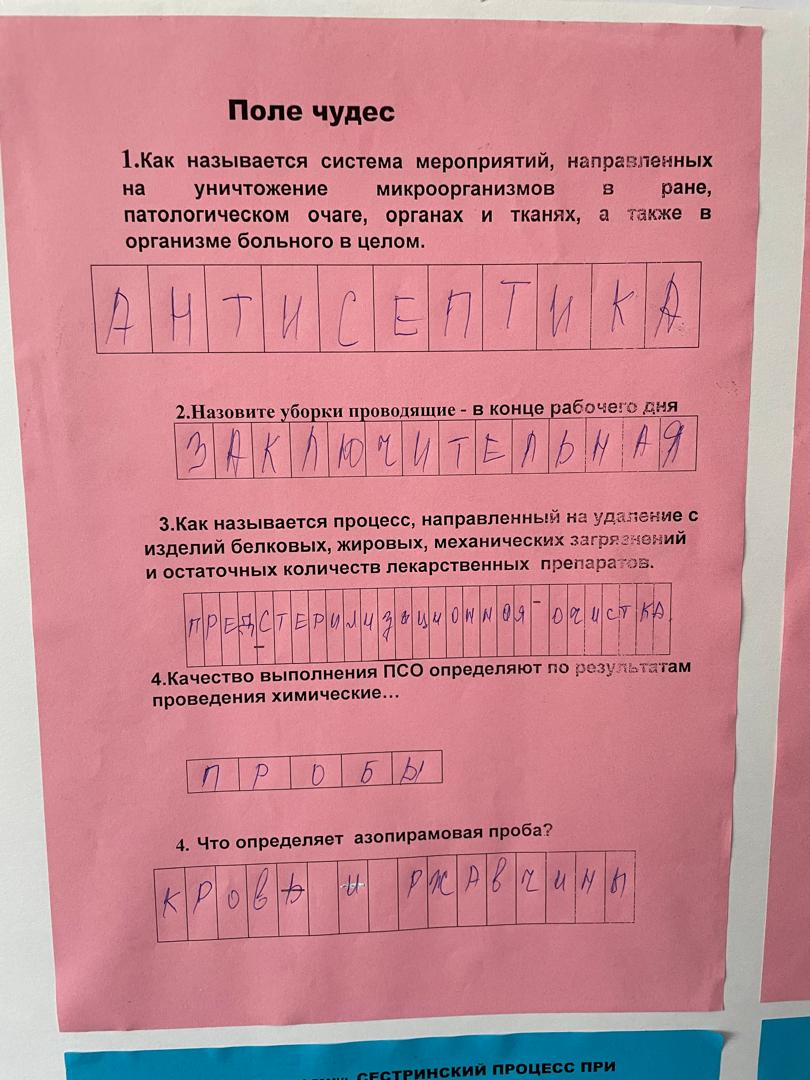 Поле чудес
1.Как называется система мероприятий, направленных
на уничтожение микроорганизмов в ране,
патологическом очаге, органах и тканях, а также в
организме больного в целом.
АНТИСЕПТИКА
2.Назовите уборки проводящие - в конце рабочего дня
ЗАКЛЮЧИТЕЛЬНАЯ
3.Как называется процесс, направленный на удаление с
изделий белковых, жировых, механических загрязнений
и остаточных количеств лекарственных препаратов.
ПРЕДСТЕРИЛИЗАЦИОННАЯ-ОЧИСТКА
4.Качество выполнения ПСО определяют по результатам
проведения химические...
ПРОБЫ
4. Что определяет азопирамовая проба?
КРОВЬ И РЖАВЧИНЫ
СЕСТРИНСКИЙ ПРОЦЕСС ПРИ